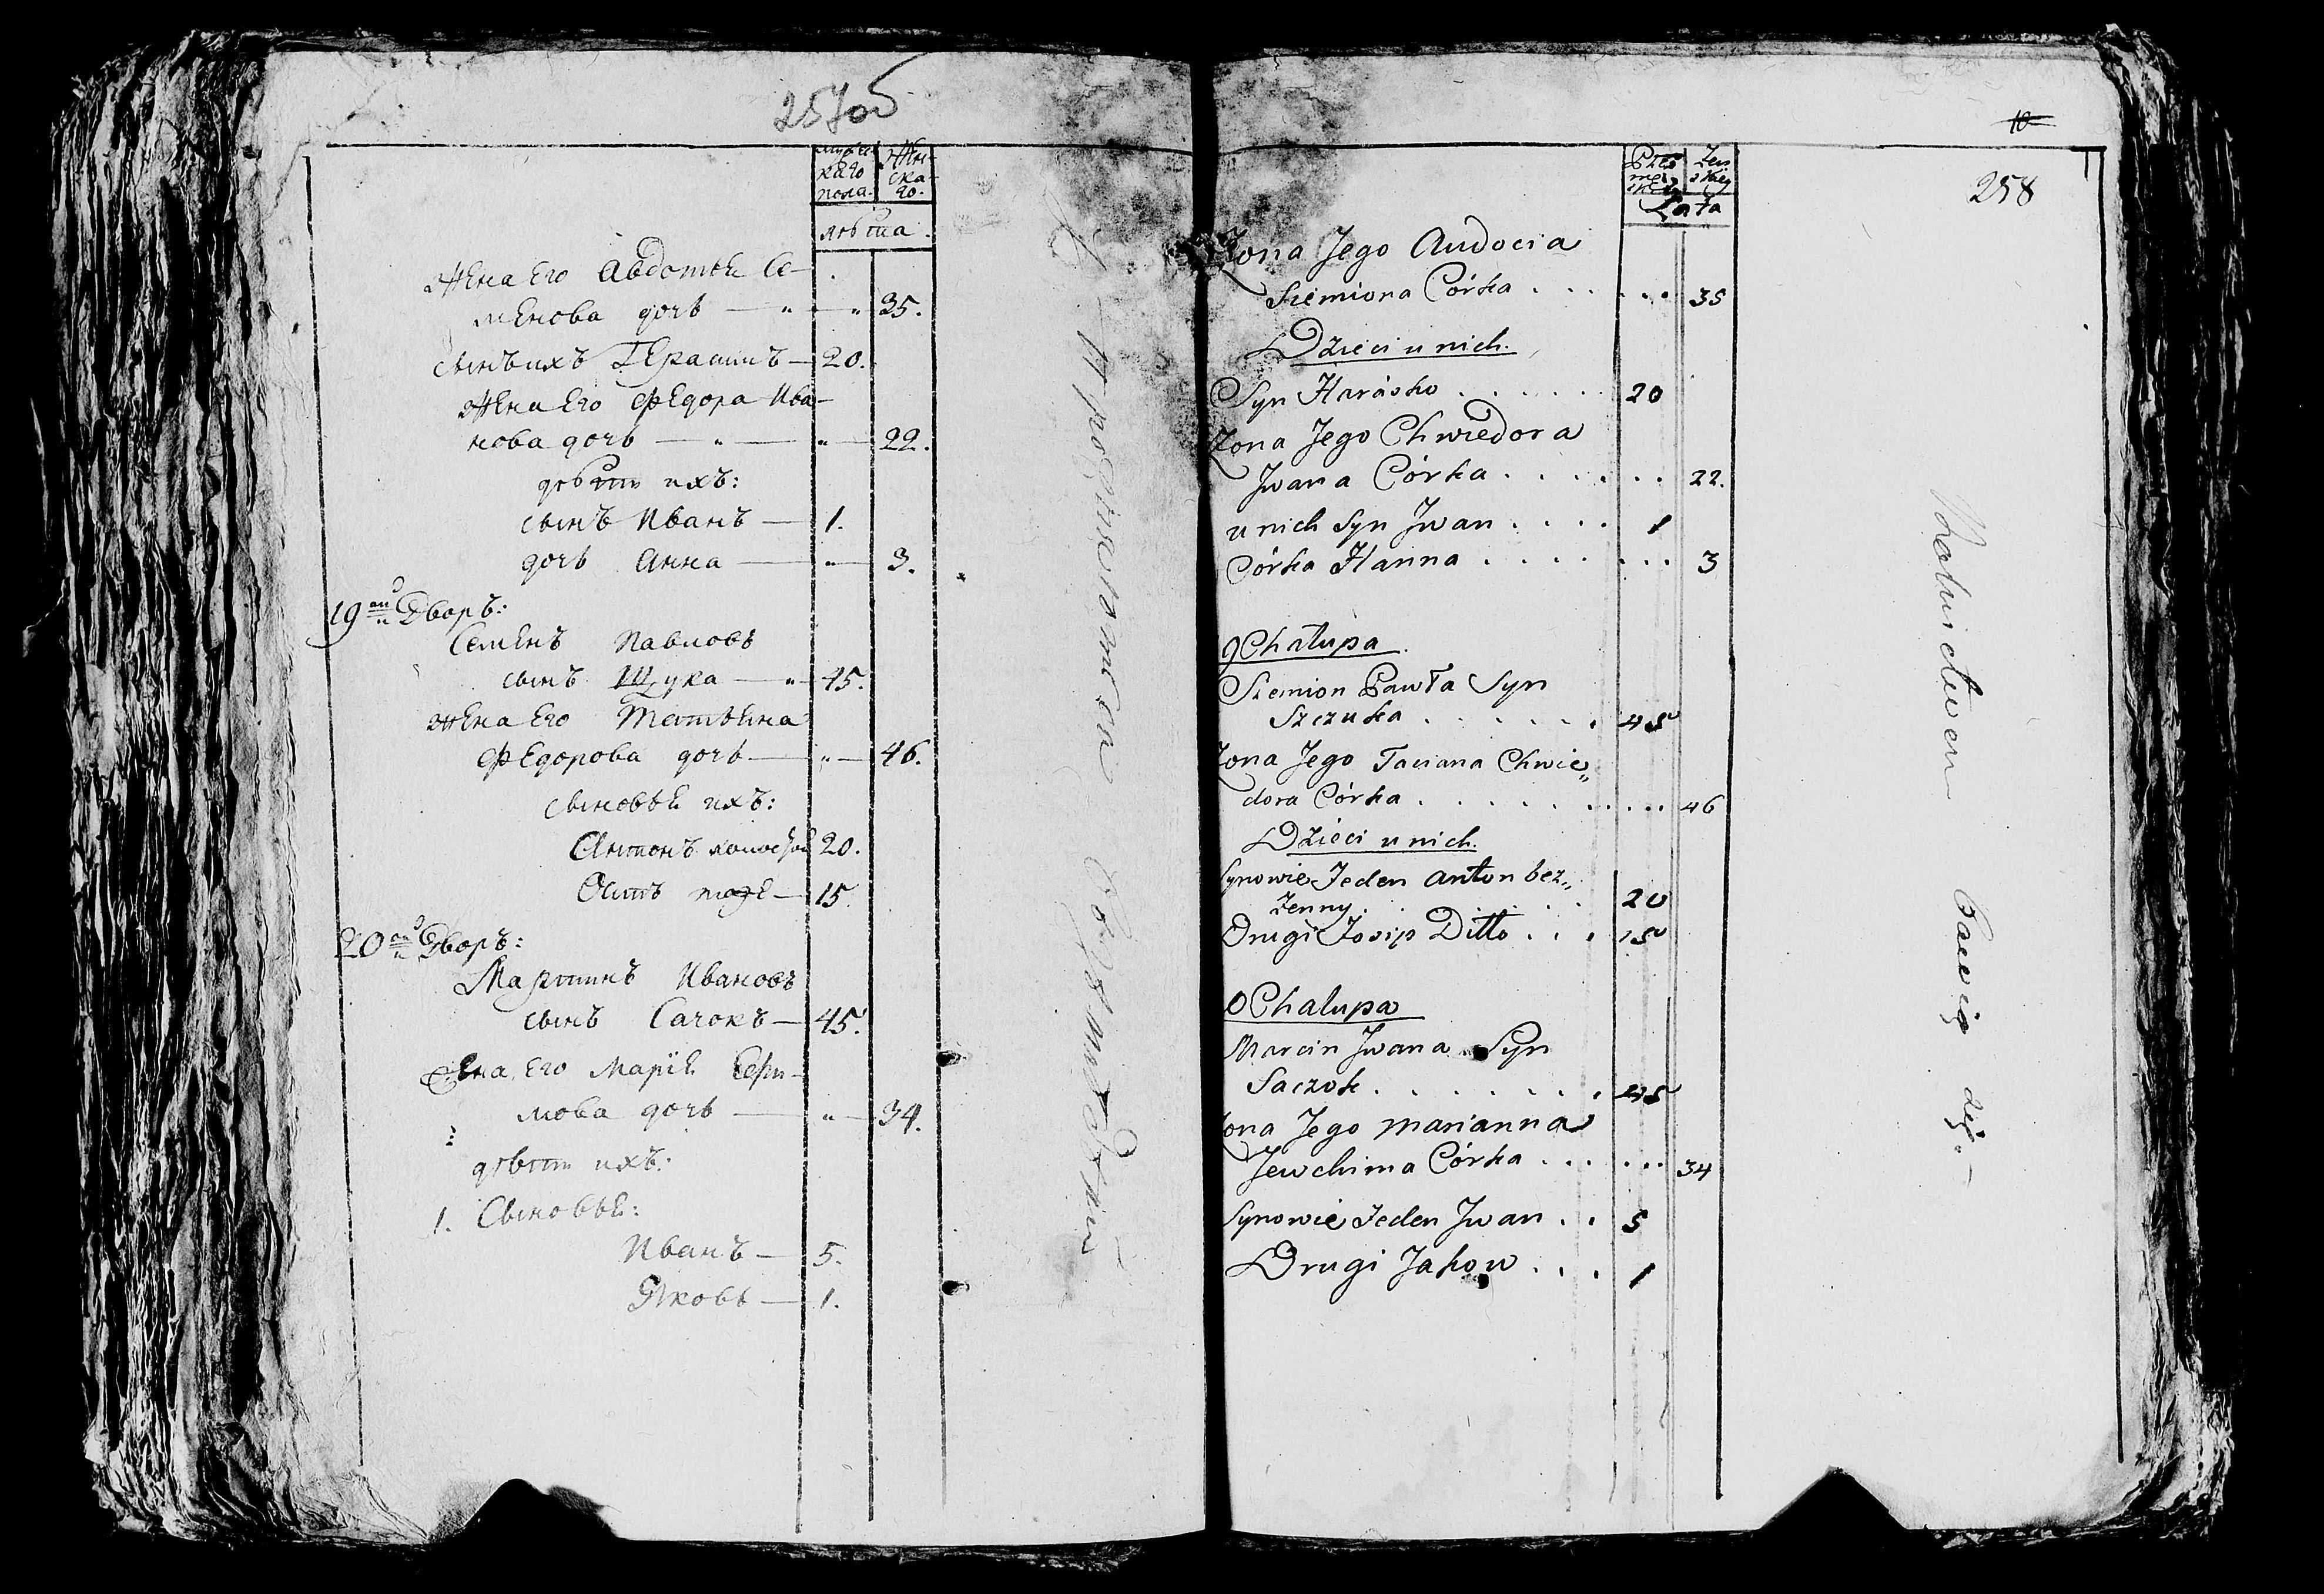 257об
мужес
каго
пола.
Жен-
ска-
го.
лѣта.
Жена Его Авдотья Се-
менова дочь — " — " 35.
сынъ ихъ Герасимъ — 20.
Жена Его Федора Ива-
нова дочь — " — " — 22.
дѣти ихъ:
сынъ Иванъ — 1.
дочь Анна — " — 3.
19ой Дворъ:
Семенъ Павловъ
сынъ Щука — " 45.
жена Его Татьяна
Федорова дочь — " — 46.
сыновья ихъ:
Антонъ холостой 20.
Осипъ тоже — 15.
20ой Дворъ:
Мартинъ Ивановъ
сынъ Сачокъ — 45.
Жена Его Марія
мова дочь — " — 34.
дѣти ихъ:
1. Сыновья:
Иванъ — 5.
Яковъ — 1.
10
258
Lata
Żona Jego Audocia
Siemiona Córka . . . . . . 35
Dzieci u nich.
Syn Harásko . . . . . . 20
Żona Jego Chwiedora
Jwana Córka . . . . . . . 22.
u nich Syn Jwan . . . . 1
Córka Hanna . . . . . . . . 3
9 Chałupa.
Siemion Pawła Syn
Szczuka . . . . . . 45
Żona Jego Taciana Chwie„
dora Córka . . . . . . . . . . 46
Dzieci u nich.
Synowie Jeden Anton bez„
żenny. . . . . . 20
Drugi Josip Ditto . . . 15
0 Chalupa
Marcin Jwana Syn
Saczok . . . . . . . 45
Żona Jego Marianna
Jewchima Córka . . . . . . 34
Synowie Jeden Jwan . . 5
Drugi Jakow . . . 1